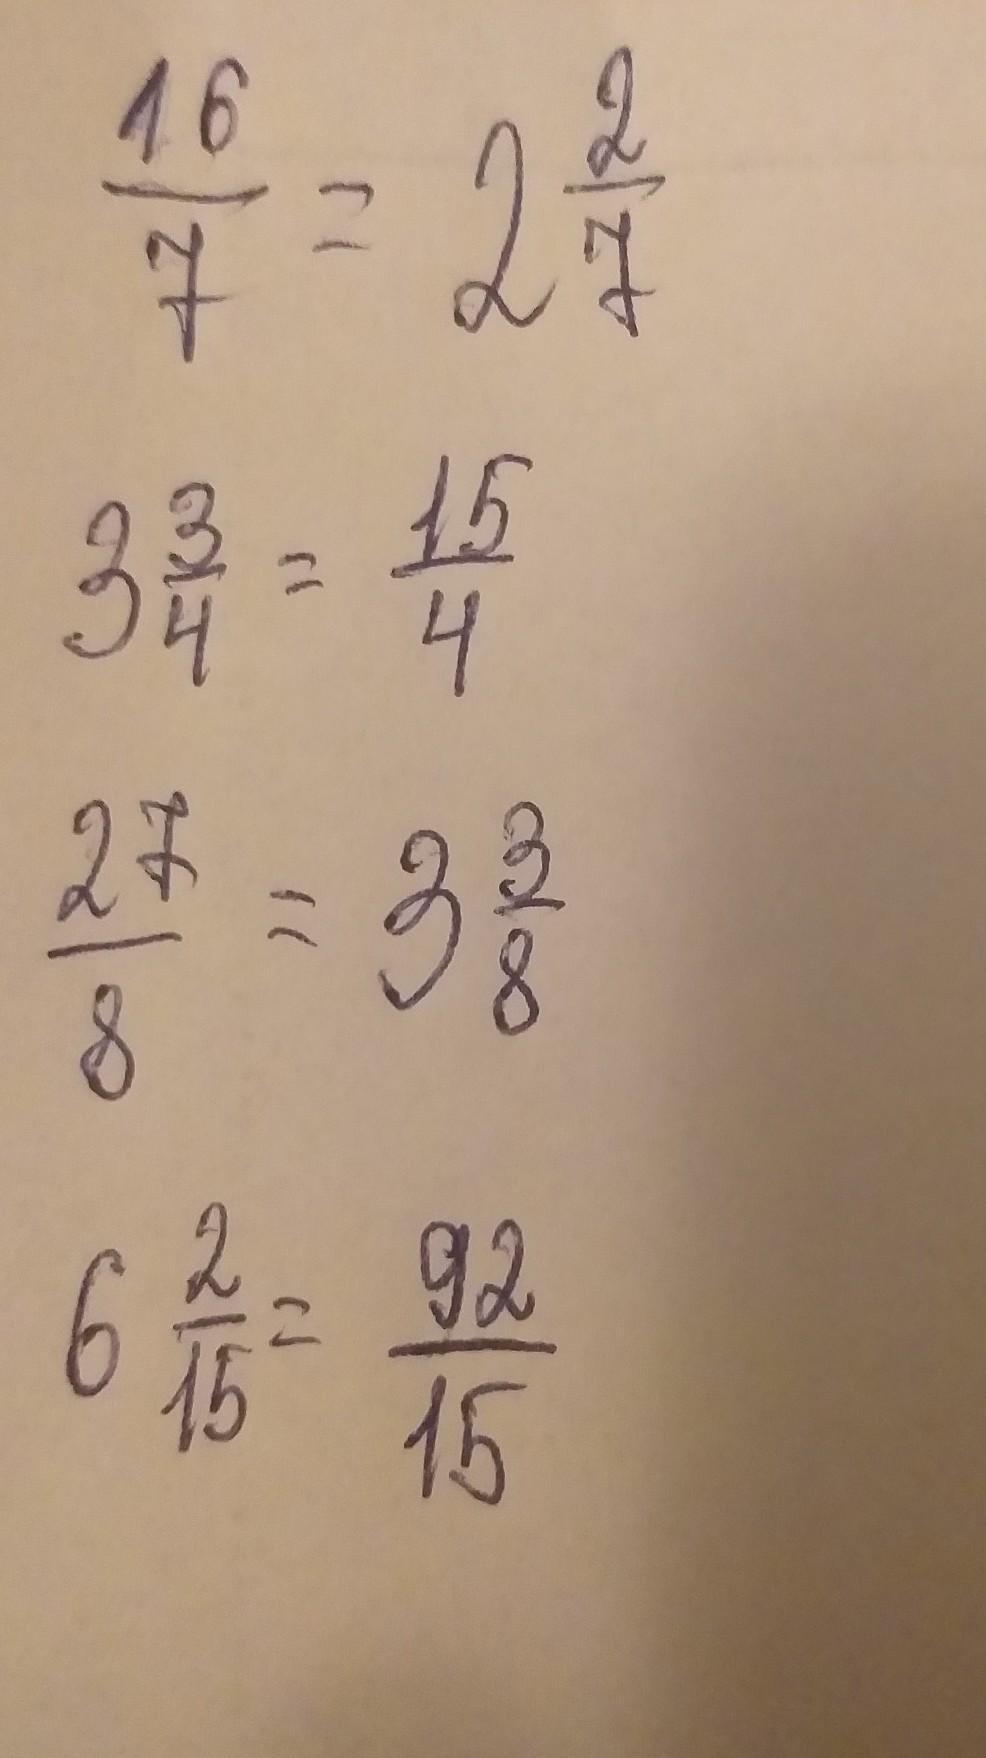 16/7 = 2 2/7
3 3/4 = 15/4
27/8 = 3 3/8
6 2/15 = 92/15